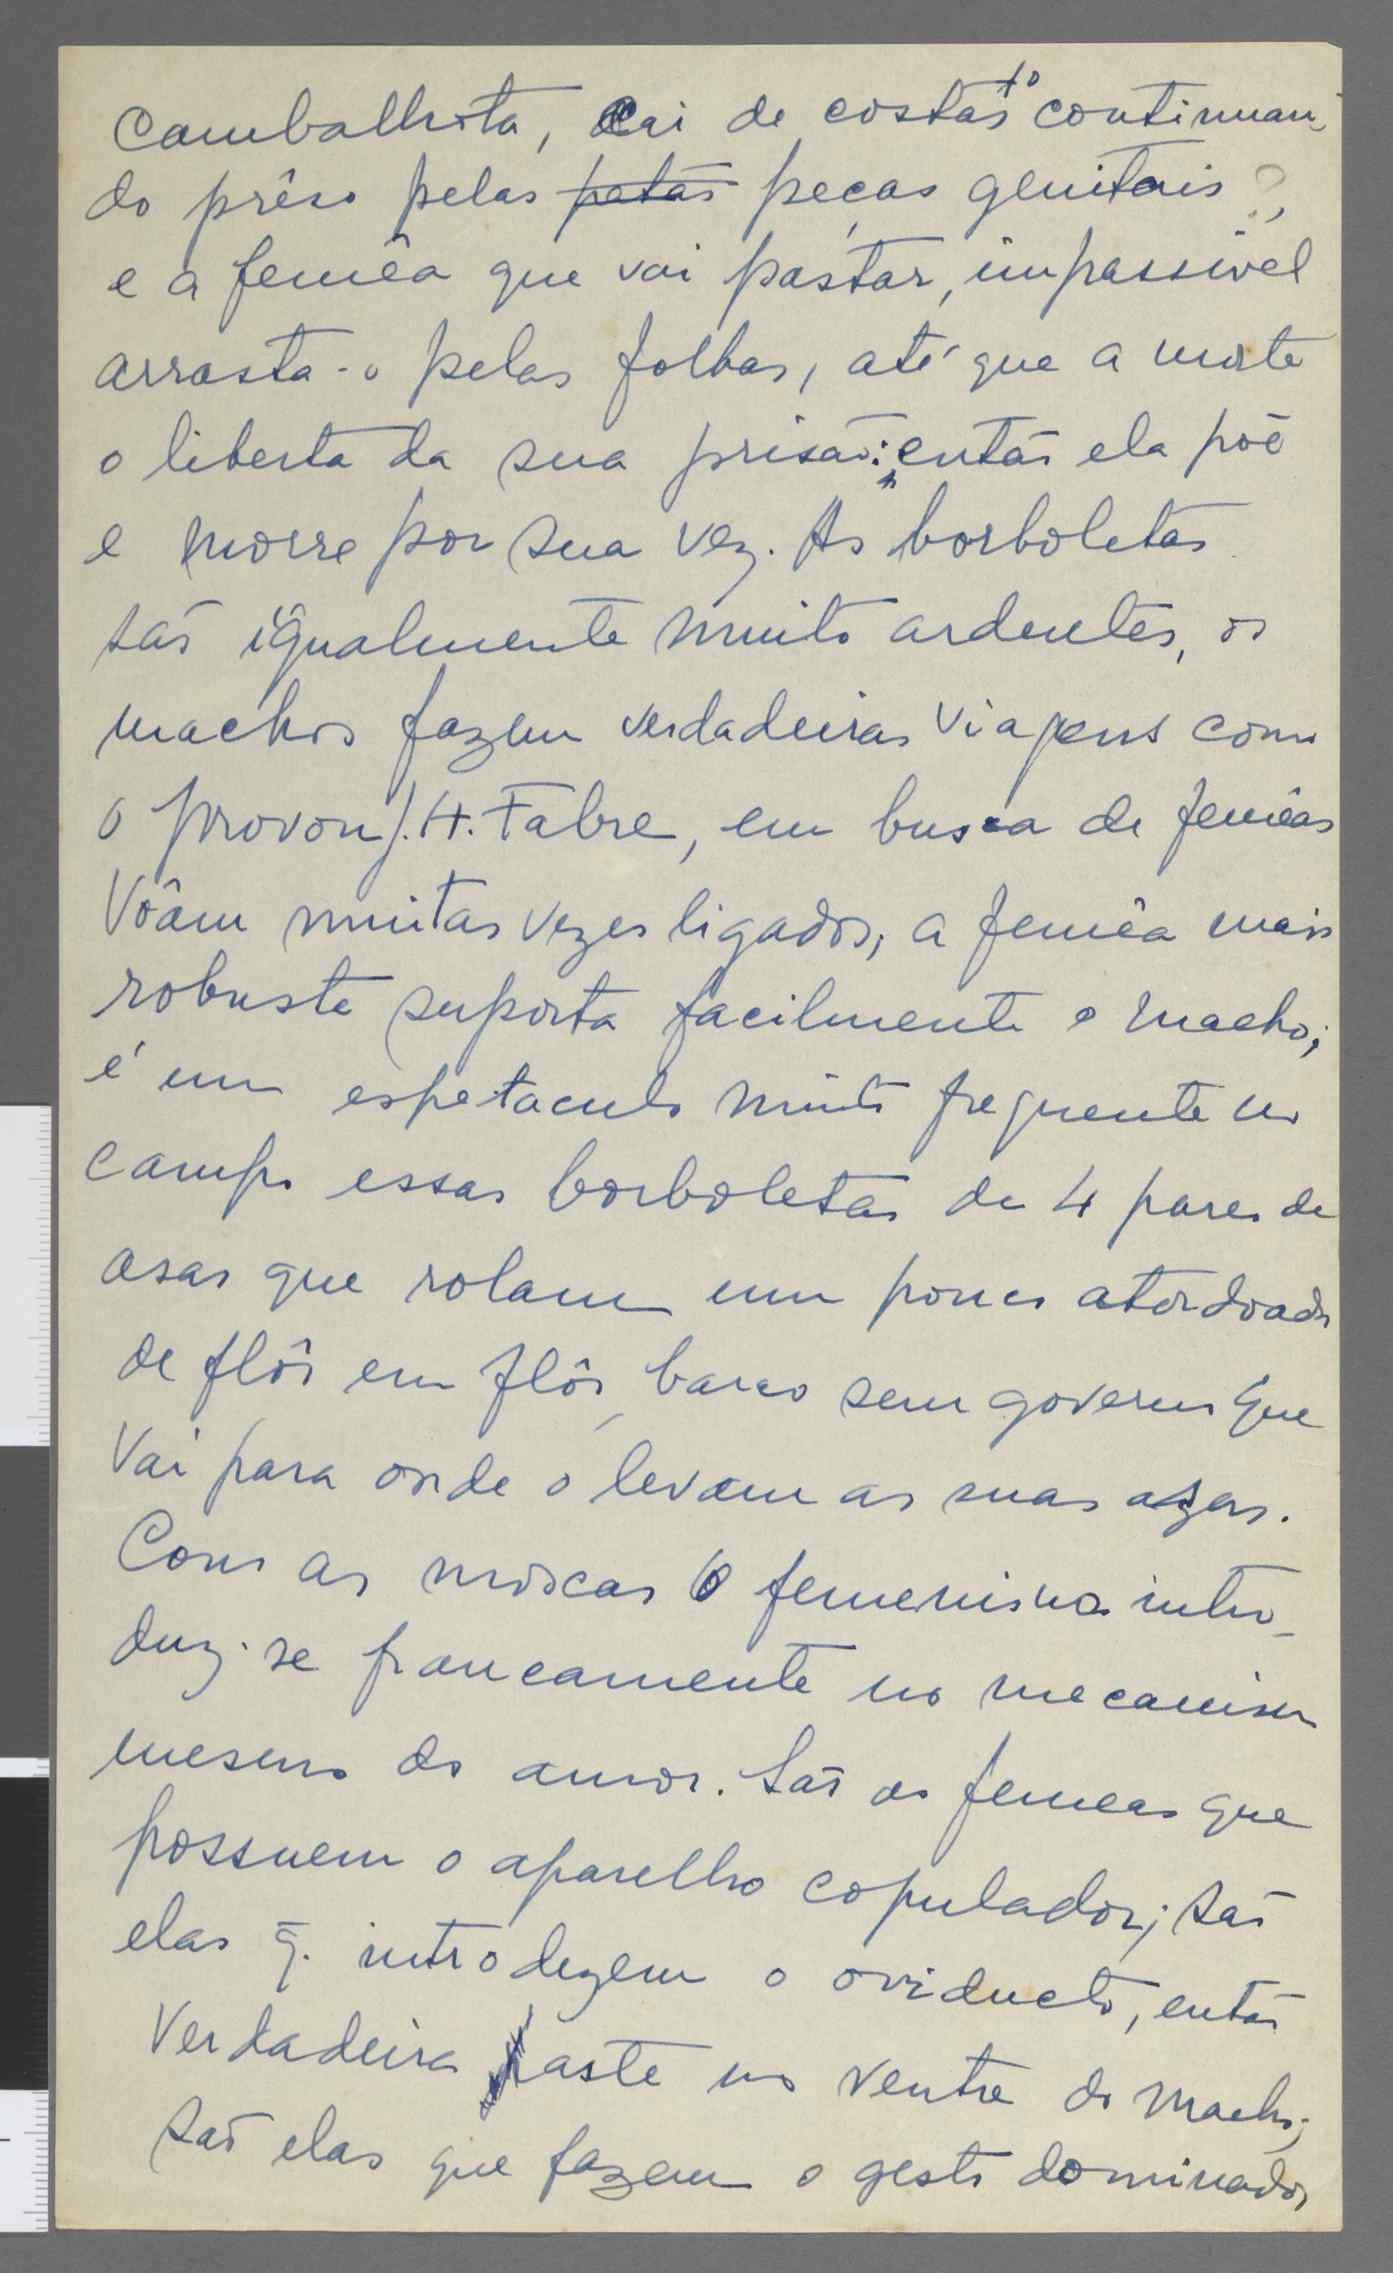 Cambalhota, cai de costas continuan-
do prêso pelas patas peças genitais?,
e a femêa que vai pastar, impassivel
arrasta-o pelas folhas, até que a morte
o liberta da sua prisão; então ela põe
e morre por sua vez. As borboletas
são igualmente muito ardentes, os
machos fazem verdadeiras viagens como
o provou J. H. Fabre, em busca de femêas
Vôam muitas vezes ligados; a femêa mais
robusta suporta facilmente o macho;
é um espetaculo muito frequente no
campo essas borboletas de 4 pares de
asas que rolam um pouco atordoadas
de flôr em flôr, barco sem governo que
Vai para onde o levam as suas azas.
Com as moscas o femenismo intro-
duz-se francamente no mecanismo
mesmo do amor. São as femeas que
possuem o aparelho copulador; são
elas q. introduzem o oviducto, então
Verdadeira haste no ventre do macho;
são elas que fazem o gesto dominador